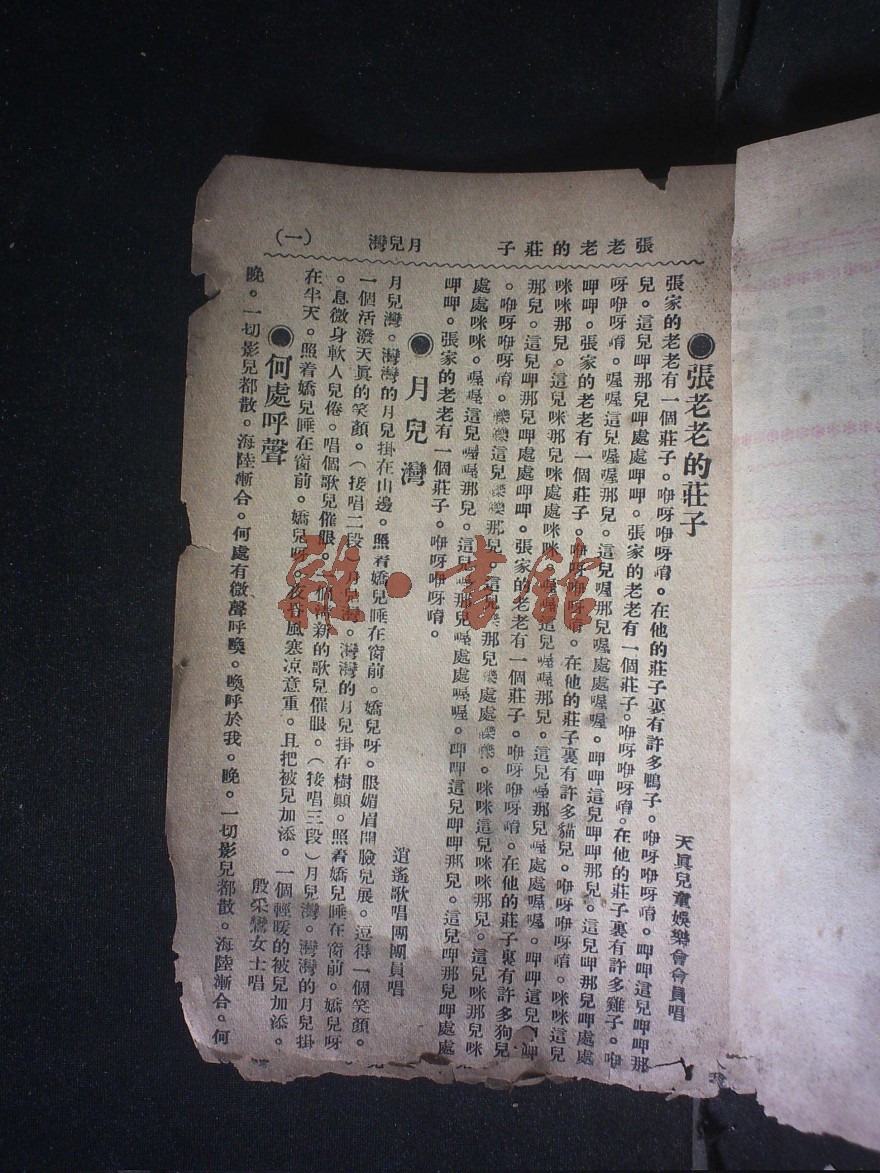 張老老的莊子　月兒灣　（一）
●張老老的莊子
天眞兒童娛樂會會員唱
張家的老老有一個莊子。咿呀咿呀唷。在他的莊子裏有許多鴨子。咿呀咿呀唷。呷呷這兒呷呷那
兒。這兒呷那兒呷處處呷呷。張家的老老有一個莊子。咿呀咿呀唷。在他的莊子裏有許多雞子。咿
呀咿呀唷。喔喔這兒喔喔那兒。這兒喔那兒喔處處喔喔。呷呷這兒呷呷那兒。這兒呷那兒呷處處
呷呷。張家的老老有一個莊子。咿呀咿呀唷。在他的莊子裏有許多貓兒。咿呀咿呀唷。咪咪這兒
咪咪那兒。這兒咪那兒咪處處咪咪。喔喔這兒喔喔那兒。這兒喔那兒喔處處喔喔。呷呷這兒呷呷
那兒。這兒呷那兒呷處處呷呷。張家的老老有一個莊子。咿呀咿呀唷。在他的莊子裏有許多狗兒
。咿呀咿呀唷。這兒那兒。這兒那兒處處。咪咪這兒咪咪那兒。這兒咪那兒咪
處處咪咪。喔喔這兒喔喔那兒。這兒喔那兒喔處處喔喔。呷呷這兒呷呷那兒。這兒呷那兒呷處處
呷呷。張家的老老有一個莊子。咿呀咿呀唷。
●月兒灣
逍遙歌唱團團員唱
月兒灣。灣灣的月兒掛在山邊。照着嬌兒睡在窗前。嬌兒呀。眼媚眉開臉兒展。逗得一個笑顏。
一個活潑天眞的笑顏。（接唱二段）月兒灣。灣灣的月兒掛在樹顚。照着嬌兒睡在窗前。嬌兒呀
。息微身軟人兒倦。唱個歌兒催眠。個新的歌兒催眠。（接唱三段）月兒灣。灣灣的月兒掛
在半天。照着嬌兒睡在窗前。嬌兒呀。夜昏風寒凉意重。且把被兒加添。一個輕暖的被兒加添。
●何處呼聲
殷采鸞女士唱
晚。一切影兒都散。海陸漸合。何處有微聲呼喚。喚呼於我。晚。一切影兒都散。海陸漸合。何
雜·書館